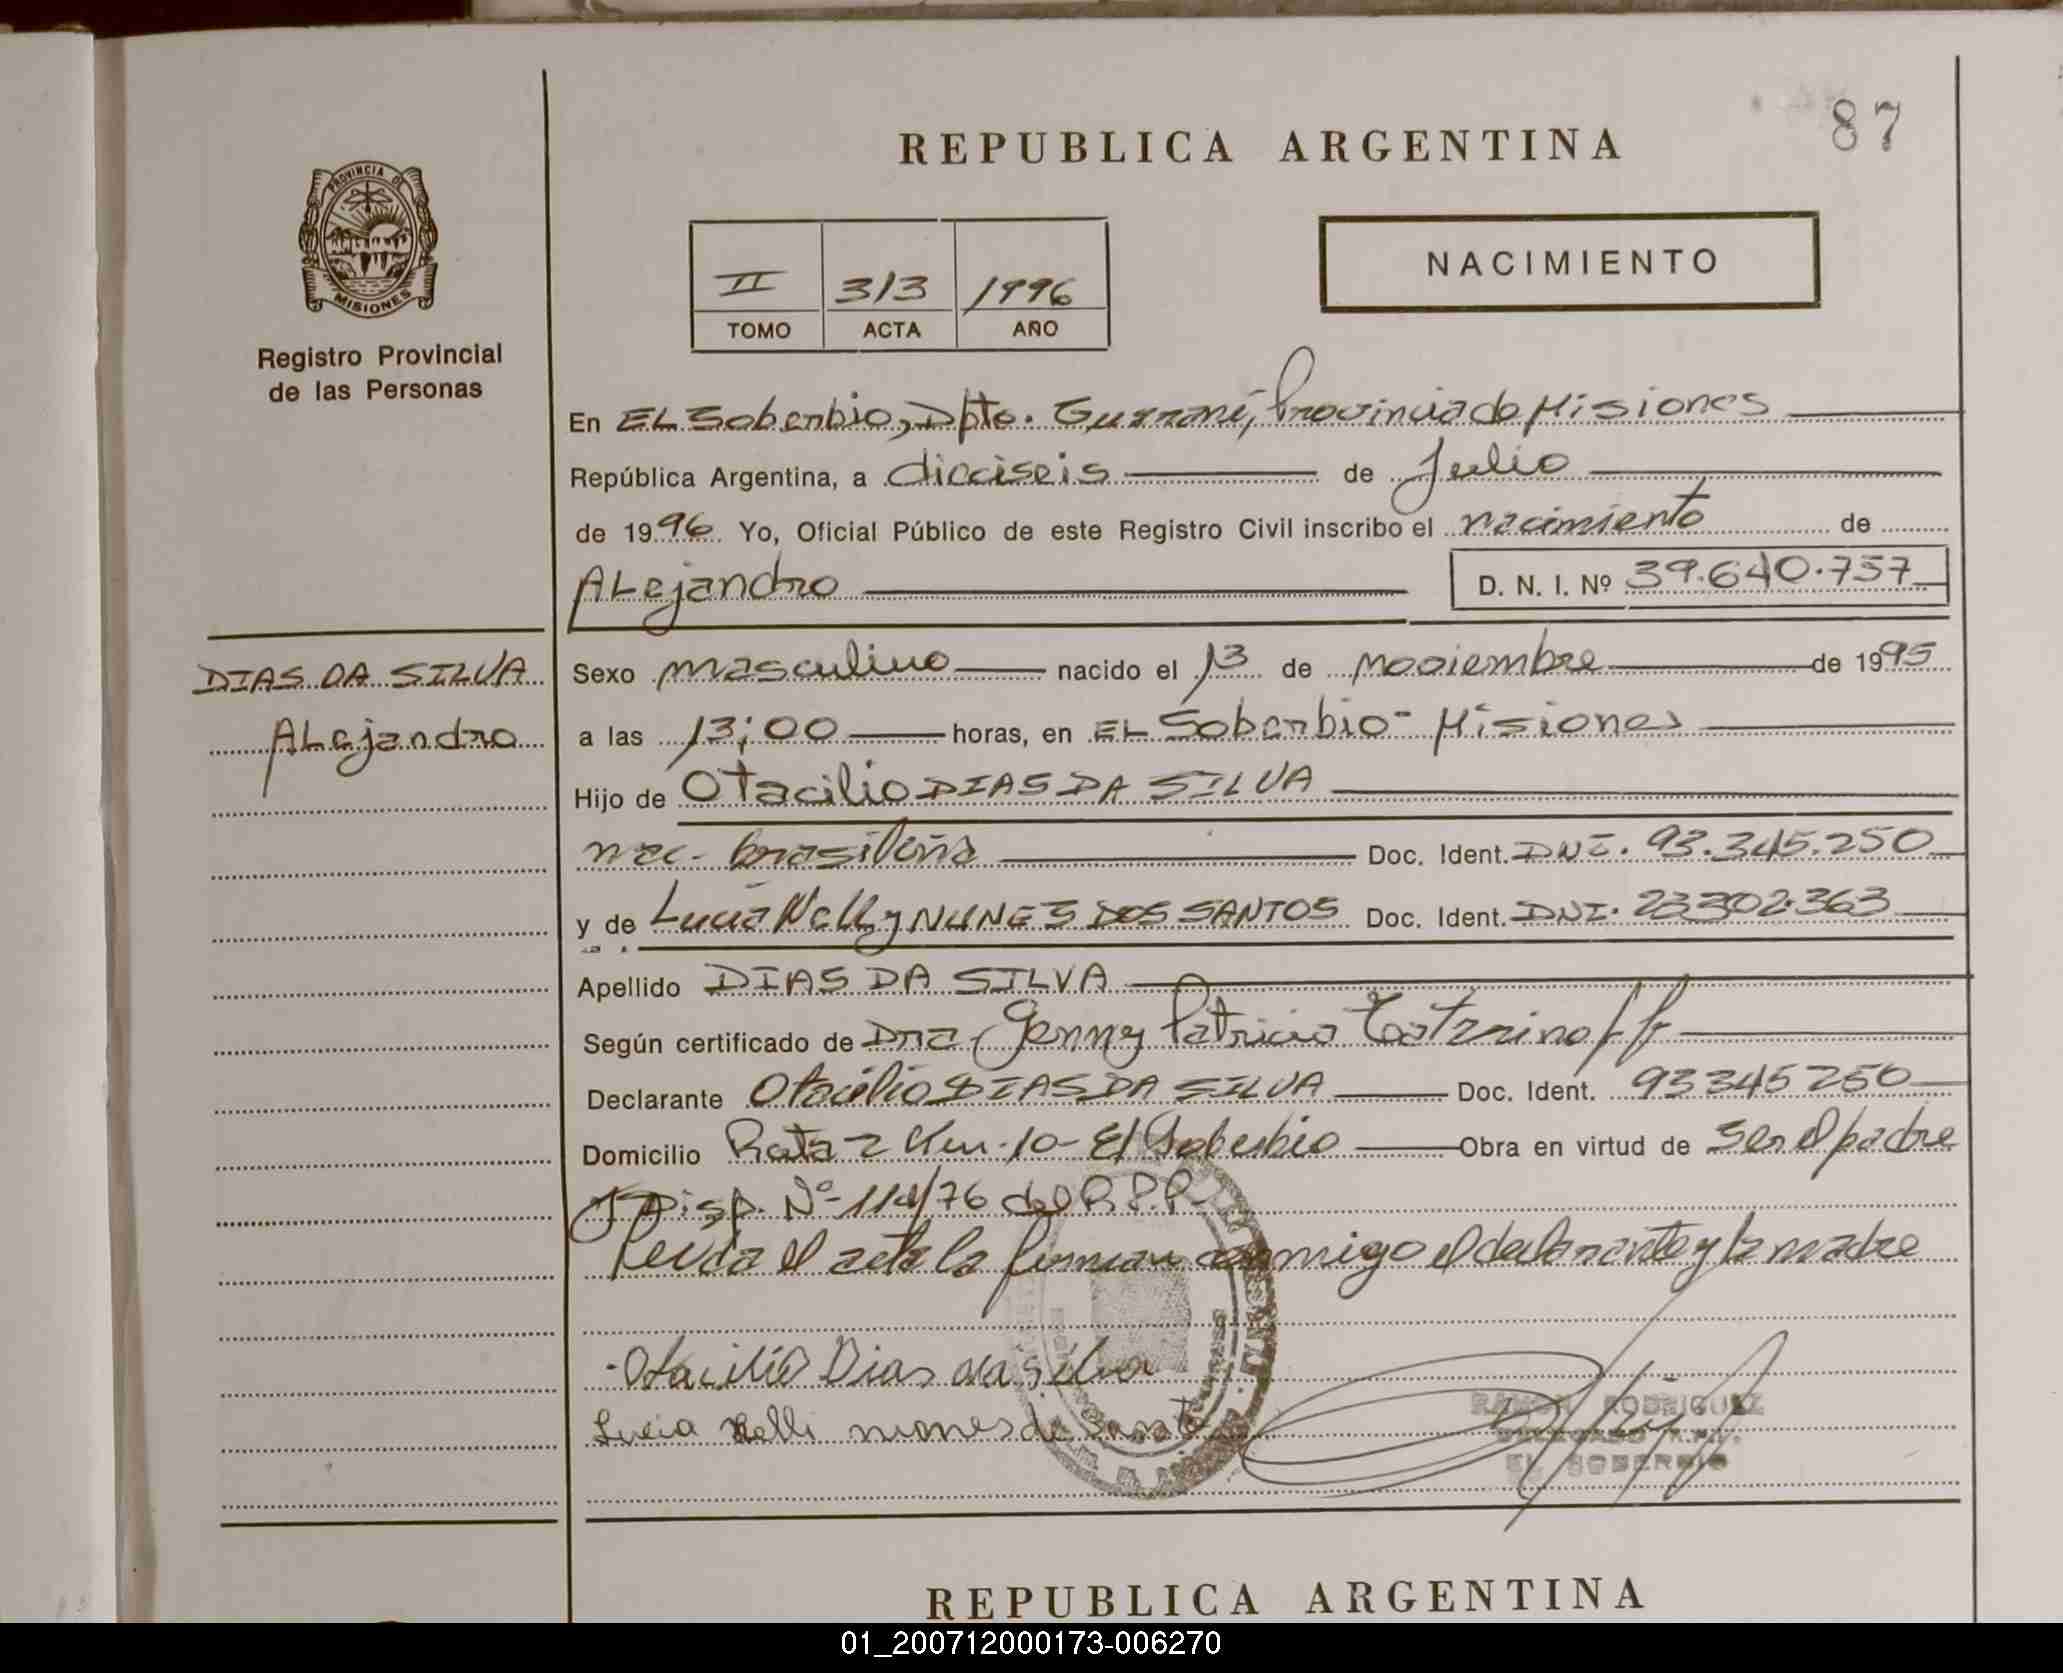 87
REPUBLICA ARGENTINA
PROVINCIA DE
MISIONES
Registro Provincial
de las Personas
II 313 1996
TOMO ACTA AÑO
NACIMIENTO
En EL Soberbio, Dpto. Guaraní, Provincia de Misiones
República Argentina, a dieciseis de Julio
de 1996 Yo, Oficial Público de este Registro Civil inscribo el nacimiento de
ALejandro D. N. I. Nº 39.640.757
DIAS DA SILVA
ALejandro
Sexo masculino nacido el 13 de noviembre de 1995
a las 13;00 horas, en EL Soberbio - Misiones
Hijo de Otacilio DIAS DA SILVA
nac. brasileña Doc. Ident. DNI. 93.345.250
y de Lucia Nelly NUNES DOS SANTOS Doc. Ident. DNI. 23302.363
Apellido DIAS DA SILVA
Según certificado de Dra. Genny Patricia
Declarante Otacilio DIAS DA SILVA Doc. Ident. 93345250
Domicilio Ruta 2 Km. 10 - El Soberbio Obra en virtud de ser el padre
y Disp. Nº 114/76 del R.P.P.
Leida el acta la firman conmigo el declarante y la madre
Otacilio Dias da Silva
Lucia Nelli nunes do Santo
RAMON RODRIGUEZ
DELEGADO
EL SOBERBIO
REPUBLICA ARGENTINA
01_200712000173-006270